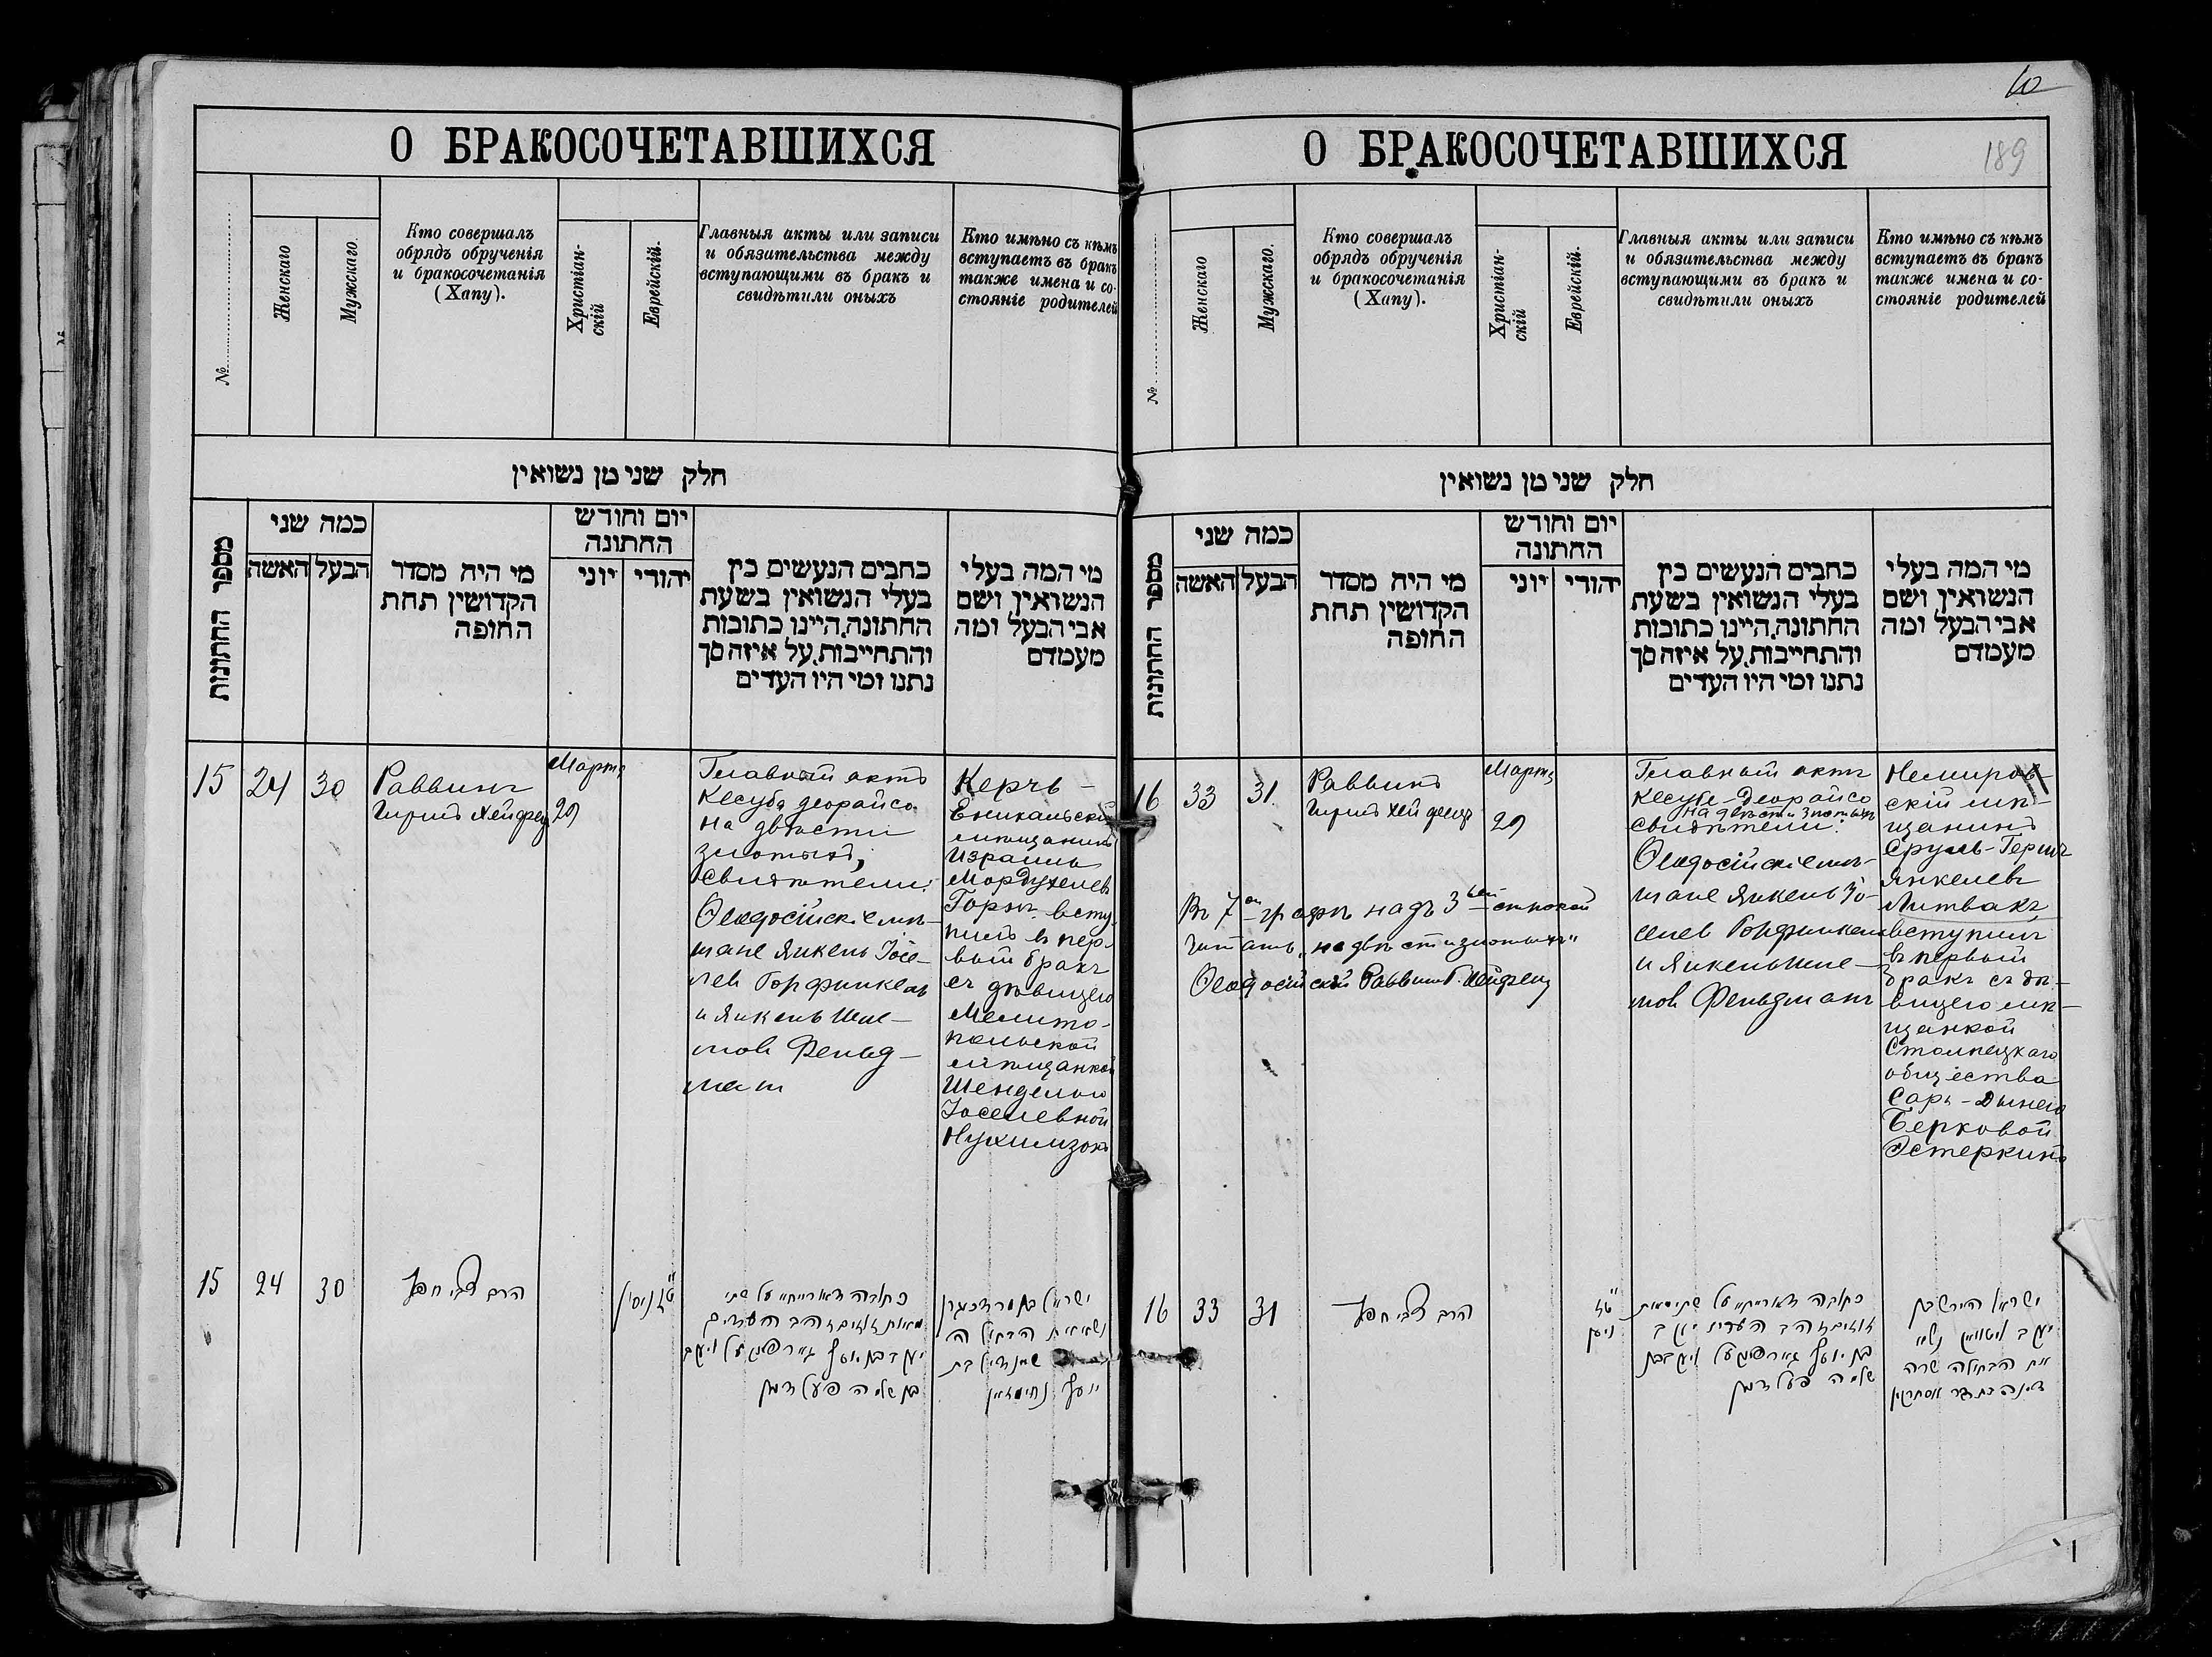 О БРАКОСОЧЕТАВШИХСЯ
№
Женскаго
Мужскаго.
Кто совершалъ
обрядъ обрученія
и бракосочетанія
(Хапу).
Христіан-
скій
Еврейскій.
Главныя акты или записи
и обязательства между
вступающими въ бракъ и
свидѣтили оныхъ
Кто имѣно съ кѣмъ
вступаетъ въ бракъ
также имена и со-
стояніе родителей
חלק שני מן נשואין
מספר החתונות
כמה שני
הבעל
האשה
מי היה מסדר
הקדושין תחת
החופה
יום וחודש
החתונה
יהודי
יוני
כתבים הנעשים בין
בעלי הנשואין בשעת
החתונה, היינו כתובות
והתחייבות, על איזה סך
נתנו ומי היו העדים
מי המה בעלי
הנשואין ושם
אבי הבעל ומה
מעמדם
15
24
30
Раввинъ
Гиршъ Хейфецъ
Мартъ
29
Главный актъ
Кесуба деорайсо
на двѣсти
злотыхъ,
свидѣтели:
Ѳеодосійскіе мѣ-
щане Янкель Іосе-
лев Горфинкель
и Янкель Шле-
мов Фельд-
ман
Керчь-
Еникальскій
мѣщанинъ
Израиль
Мордухелев
Горнъ всту-
пилъ въ пер-
вый бракъ
съ дѣвицею
Мелито-
польской
мѣщанкой
Шенделью
Іоселевной
Нухимзонъ
15
24
30
הרב צבי חפץ
ט"ז ניסן
כתובה דאורייתא על שתי
מאות זהב העדים
יעקב בן יוסף
בן שלמה פעלדמן
ישראל בן מרדכי
הבתולה
שיינדיל בת
יוסף נחימזאן
10
189
О БРАКОСОЧЕТАВШИХСЯ
№
Женскаго
Мужскаго.
Кто совершалъ
обрядъ обрученія
и бракосочетанія
(Хапу).
Христіан-
скій
Еврейскій.
Главныя акты или записи
и обязательства между
вступающими въ бракъ и
свидѣтили оныхъ
Кто имѣно съ кѣмъ
вступаетъ въ бракъ
также имена и со-
стояніе родителей
חלק שני מן נשואין
מספר החתונות
כמה שני
הבעל
האשה
מי היה מסדר
הקדושין תחת
החופה
יום וחודש
החתונה
יהודי
יוני
כתבים הנעשים בין
בעלי הנשואין בשעת
החתונה, היינו כתובות
והתחייבות, על איזה סך
נתנו ומי היו העדים
מי המה בעלי
הנשואין ושם
אבי הבעל ומה
מעמדם
16
33
31
Раввинъ
Гиршъ Хейфецъ
Мартъ
29
Главный актъ
Кесубе-Деорайсо
на двѣсти злотыхъ
свидѣтели:
Ѳеодосійскіе мѣ-
щане Янкель Іо-
селев Горфинкель
и Янкель Шле-
мов Фельдманъ
Немиров-
скій мѣ-
щанинъ
Сруль-Герш
Янкелевъ
Литвакъ
вступилъ
въ первый
бракъ съ дѣ-
вицею мѣ-
щанкой
Столпецкаго
общества
Сарь-Дынею
Берковой
Эстеркинъ
Въ 7ой графѣ надъ 3ьей строкой
читать „на двѣсти злотыхъ"
Ѳеодосійскій Раввинъ Г. Хейфецъ
16
33
31
הרב צבי חפץ
ט"ז
ניסן
כתובה דאורייתא על שתי מאות
זהב העדים יעקב
בן יוסף ויעקב בן
שלמה פעלדמן
ישראל הירש בן
יעקב
את הבתולה שרה
דינה בת